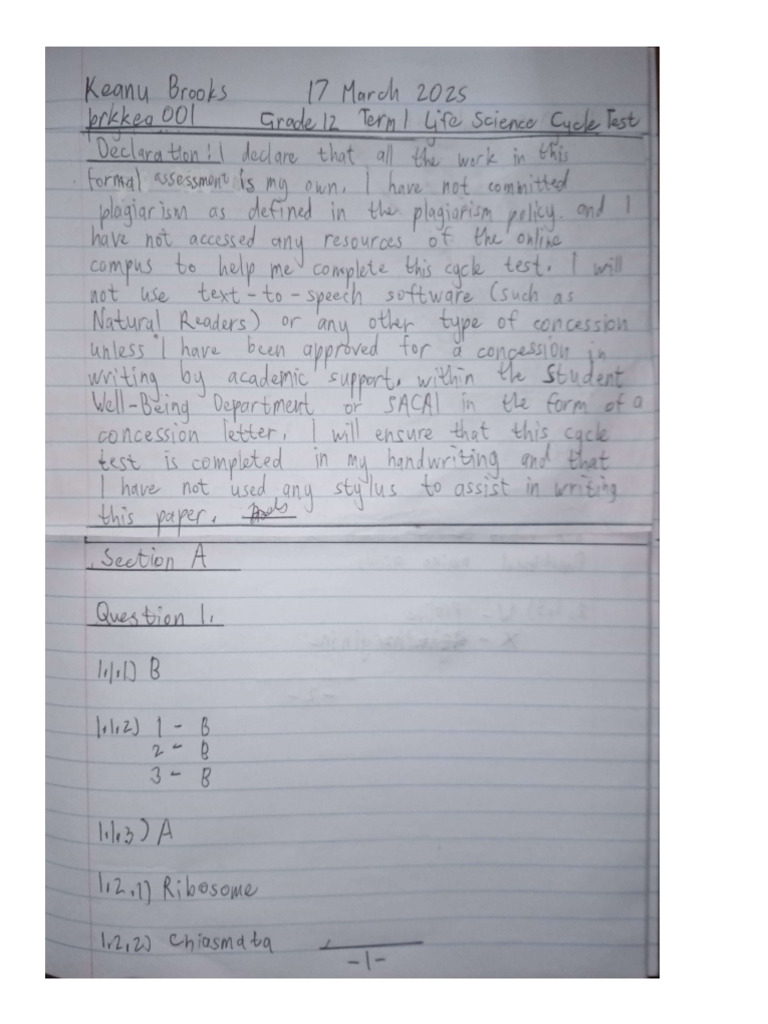 Keanu Brooks 17 March 2025
brkkea001 Grade 12 Term 1 Life Science Cycle Test
Declaration: I declare that all the work in this
formal assessment is my own. I have not committed
plagiarism as defined in the plagiarism policy. and I
have not accessed any resources of the online
campus to help me complete this cycle test. I will
not use text-to-speech software (such as
Natural Readers) or any other type of concession
unless I have been approved for a concession in
writing by academic support, within the Student
Well-Being Department or SACAI in the form of a
concession letter. I will ensure that this cycle
test is completed in my handwriting and that
I have not used any stylus to assist in writing
this paper.
Section A
Question 1.
1.1.1) B
1.1.2) 1 - B
2 - B
3 - B
1.1.3) A
1.2.1) Ribosome
1.2.2) Chiasmata
-1-